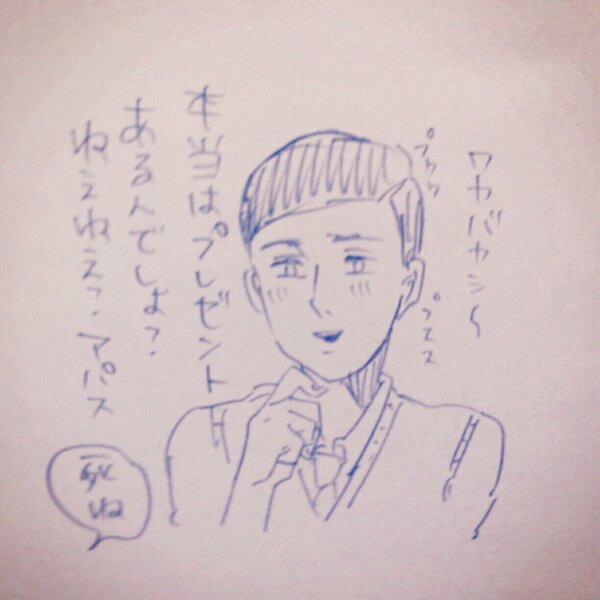 ワカバヤシ〜
プクク
プスス
本当はプレゼント
あるんでしょ?
ねぇねぇ?アパス
死ね